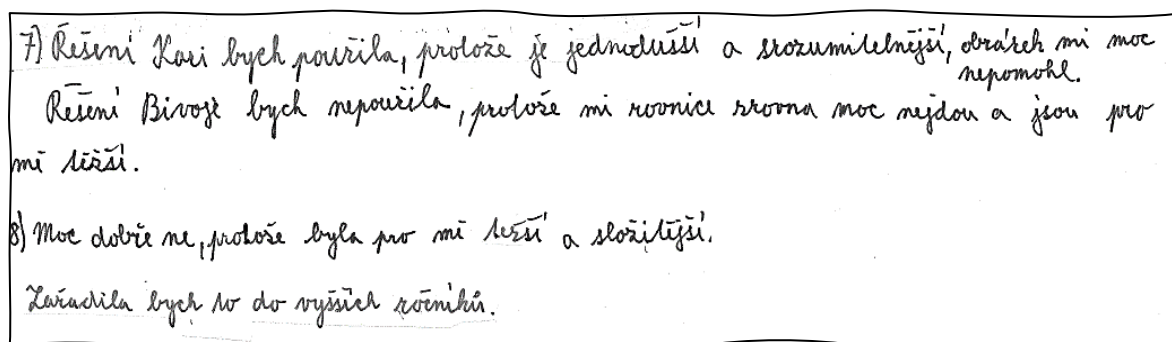 7) Řešení Kazi bych použila, protože je jednodušší a srozumitelnější, obrázek mi moc
nepomohl.
Řešení Bivoje bych nepoužila, protože mi rovnice zrovna moc nejdou a jsou pro
mě těžší.
8) Moc dobře ne, protože byla pro mě težší a složitější.
Zařadila bych to do vyšších ročníků.